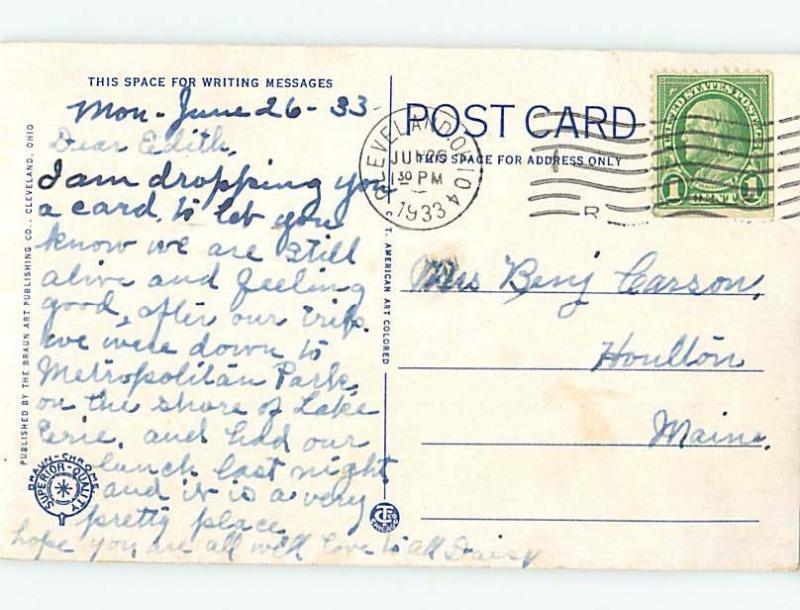 THIS SPACE FOR WRITING MESSAGES
Mon - June 26 - 33
Dear Edith,
I am dropping you
a card, to let you
know we are still
alive and feeling
good, after our trip.
we were down to
Metropolitan Park,
on the shore of Lake
Erie. and had our
lunch last night
and it is a very
pretty place
hope you are all well love to all Daisy
PUBLISHED BY THE BRAUN ART PUBLISHING CO., CLEVELAND, OHIO
BRAUN-CHROME
SUPERIOR-QUALITY
C. T. AMERICAN ART COLORED
POST CARD
THIS SPACE FOR ADDRESS ONLY
CLEVELAND, OHIO
JUN 26
1 30 PM
1933
4
R
UNITED STATES POSTAGE
FRANKLIN
1 CENT 1
Mrs Benj Carson,
Houlton
Maine.
CHICAGO